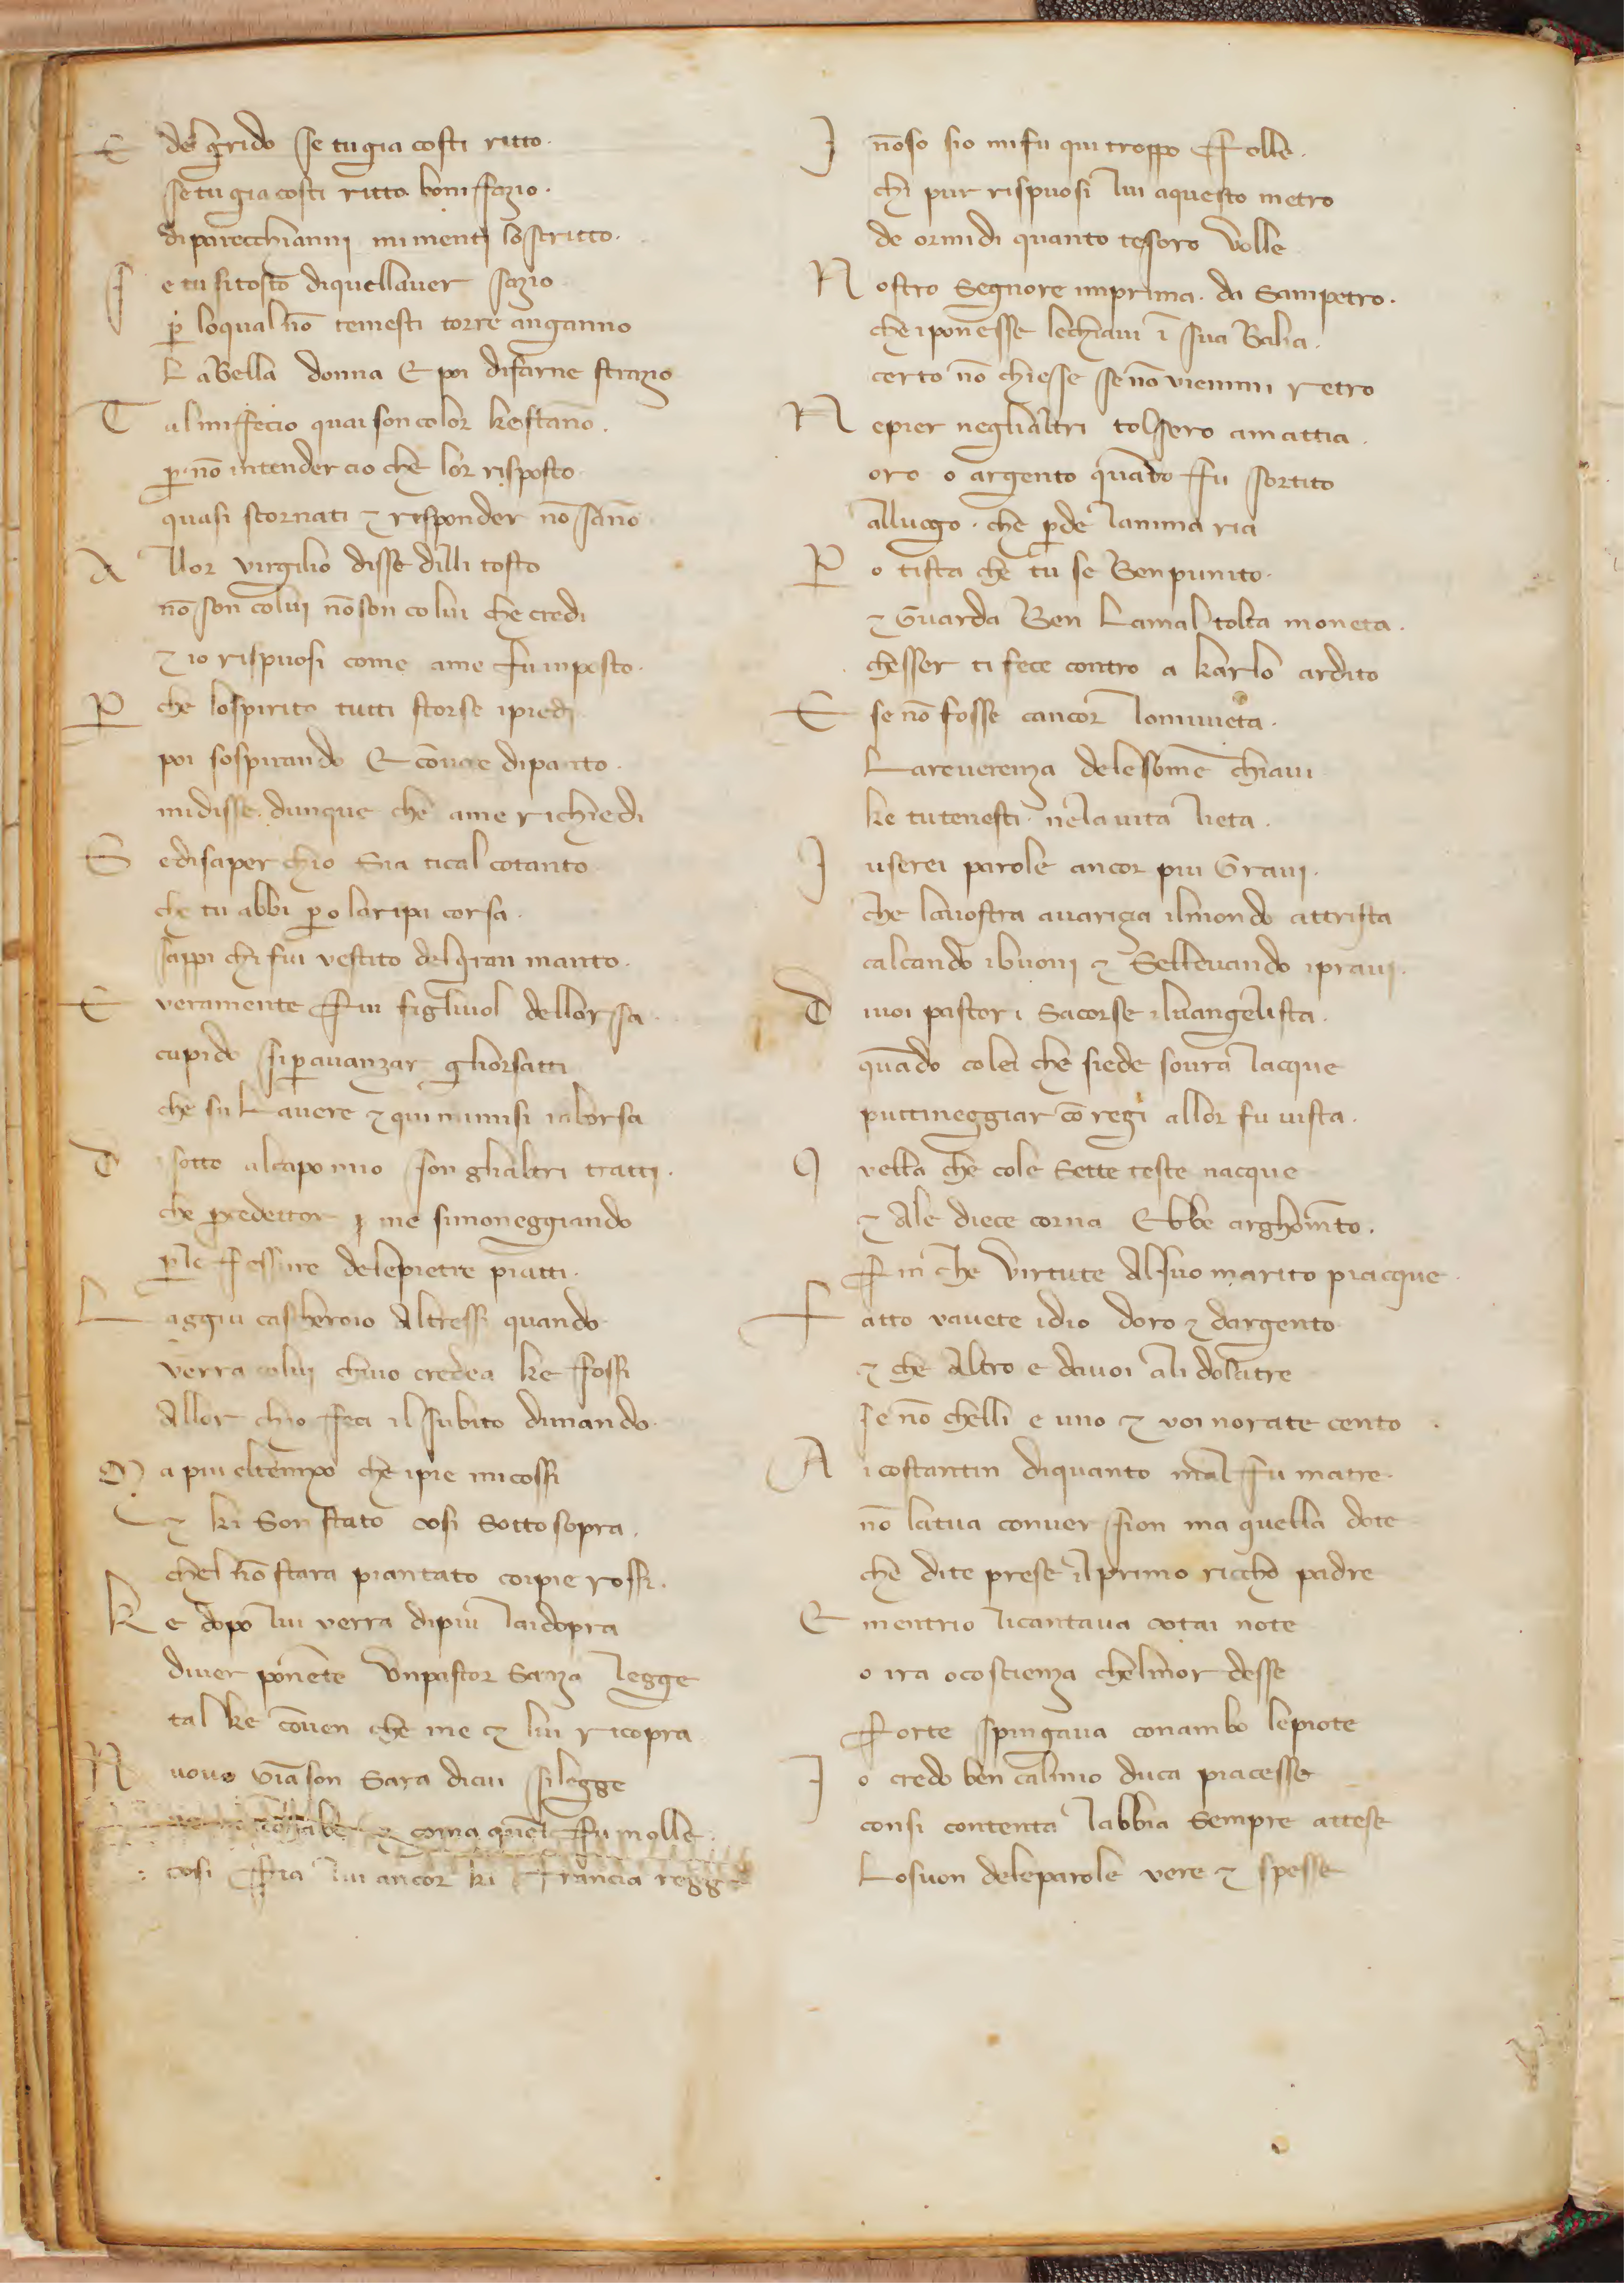 E del grido se tu gia costi ritto.
se tu gia costi ritto boniffazio.
di parecchianni mi menti lo scritto.
S e tu si tosto di quellaver sazio
p̱ loqual nō temesti torre anganno
La Bella donna E poi di farne strazio
T al mi ffecio quai son color ke stāno.
p̱ nō intender cio che lor risposto
quasi scornati ⁊ risponder nō sāno
A llor virgilio disse dilli tosto
nō son colui nō son colui che credi
⁊ io rispuosi come ame fu inposto.
P̱ che lospirito tutti storse ipiedi
poi sospirando E cō uoce dipanto.
mi disse. dunque che ame richiedi
S e di saper chio Sia ti cal cotanto
che tu abbi p̱o laripa corsa.
sappi chi fui vestito del gran manto.
E veramente ffui figliuol dellorsa.
cupido si p̱ auanzar gliorsatti
che su Lauere ⁊ qui mi misi in borsa
D i sotto al capo mio son glialtri tratti.
che p̱cedettor p̱ me simoneggiando
p̱ le ffessure dele pietre piatti.
L aggiu cascheroio Altressi quando
verra colui chiuo credea ke ffossi
Allor chio ffeci il subito dimando.
M a piu eltempo che ipie mi cossi
⁊ ki Son stato cosi Sotto sopra.
chel nō stara piantato coipie rossi.
K e dopo lui verra dipiu laidopra
diuer ponēte Vn pastor Sanza legge
tal ke cōuen che me ⁊ lui ricopra
N uouo Giāson Sara dicui si legge
⁊ coma quel ffu molle.
cosi ffia lui ancor ki Francia regge
I nō so sio mi fu qui troppo ffolle.
chi pur rispuosi lui aquesto metro
de ormi di quanto tesoro Volle
N ostro Segnore imprima. da Sampetro.
che iponesse lechiaui ī sua Balia.
certo nō chiesse se nō viemmi retro
N e pier neglialtri tolsero amattia.
oro o argento quādo ffu sortito
alluogo. che p̱de lanima ria
P̱ o tista che tu se Ben punito.
⁊ Guarda Ben La mal tolta moneta.
chesser ti fece contro a karlo ardito
E se nō fosse cancor lomiuieta.
La reuerenza dele sōme chiaui
ke tu tenesti. nela uita lieta.
I userei parole ancor piu Graui.
che lauostra auariza il mondo attrista
calcando ibuoni ⁊ Solleuando ipraui.
D iuoi pastori Sacorse iluangelista.
quādo colei che siede soura lacque
puttineggiar cō regi allor fu uista.
Q vella che cole Sette teste nacque
⁊ Ale diece corna Ebbe arghomēto.
ffin che Virtute Al suo marito piacque
F atto vauete idio doro ⁊ dargento
⁊ che Altro e dauoi alidolatre
se nō chelli e uno ⁊ voi norate cento
A i costantin diquanto mal ffu matre.
nō latua conuersion ma quella dote
che dite prese il primo riccho padre
E mentrio licantaua cotai note
o ira o coscienza chel mordesse
fforte springaua conambo lepiote
I o credo ben calmio duca piacesse
consi contenta labbia Sempre attese
Lo suon dele parole vere ⁊ spesse